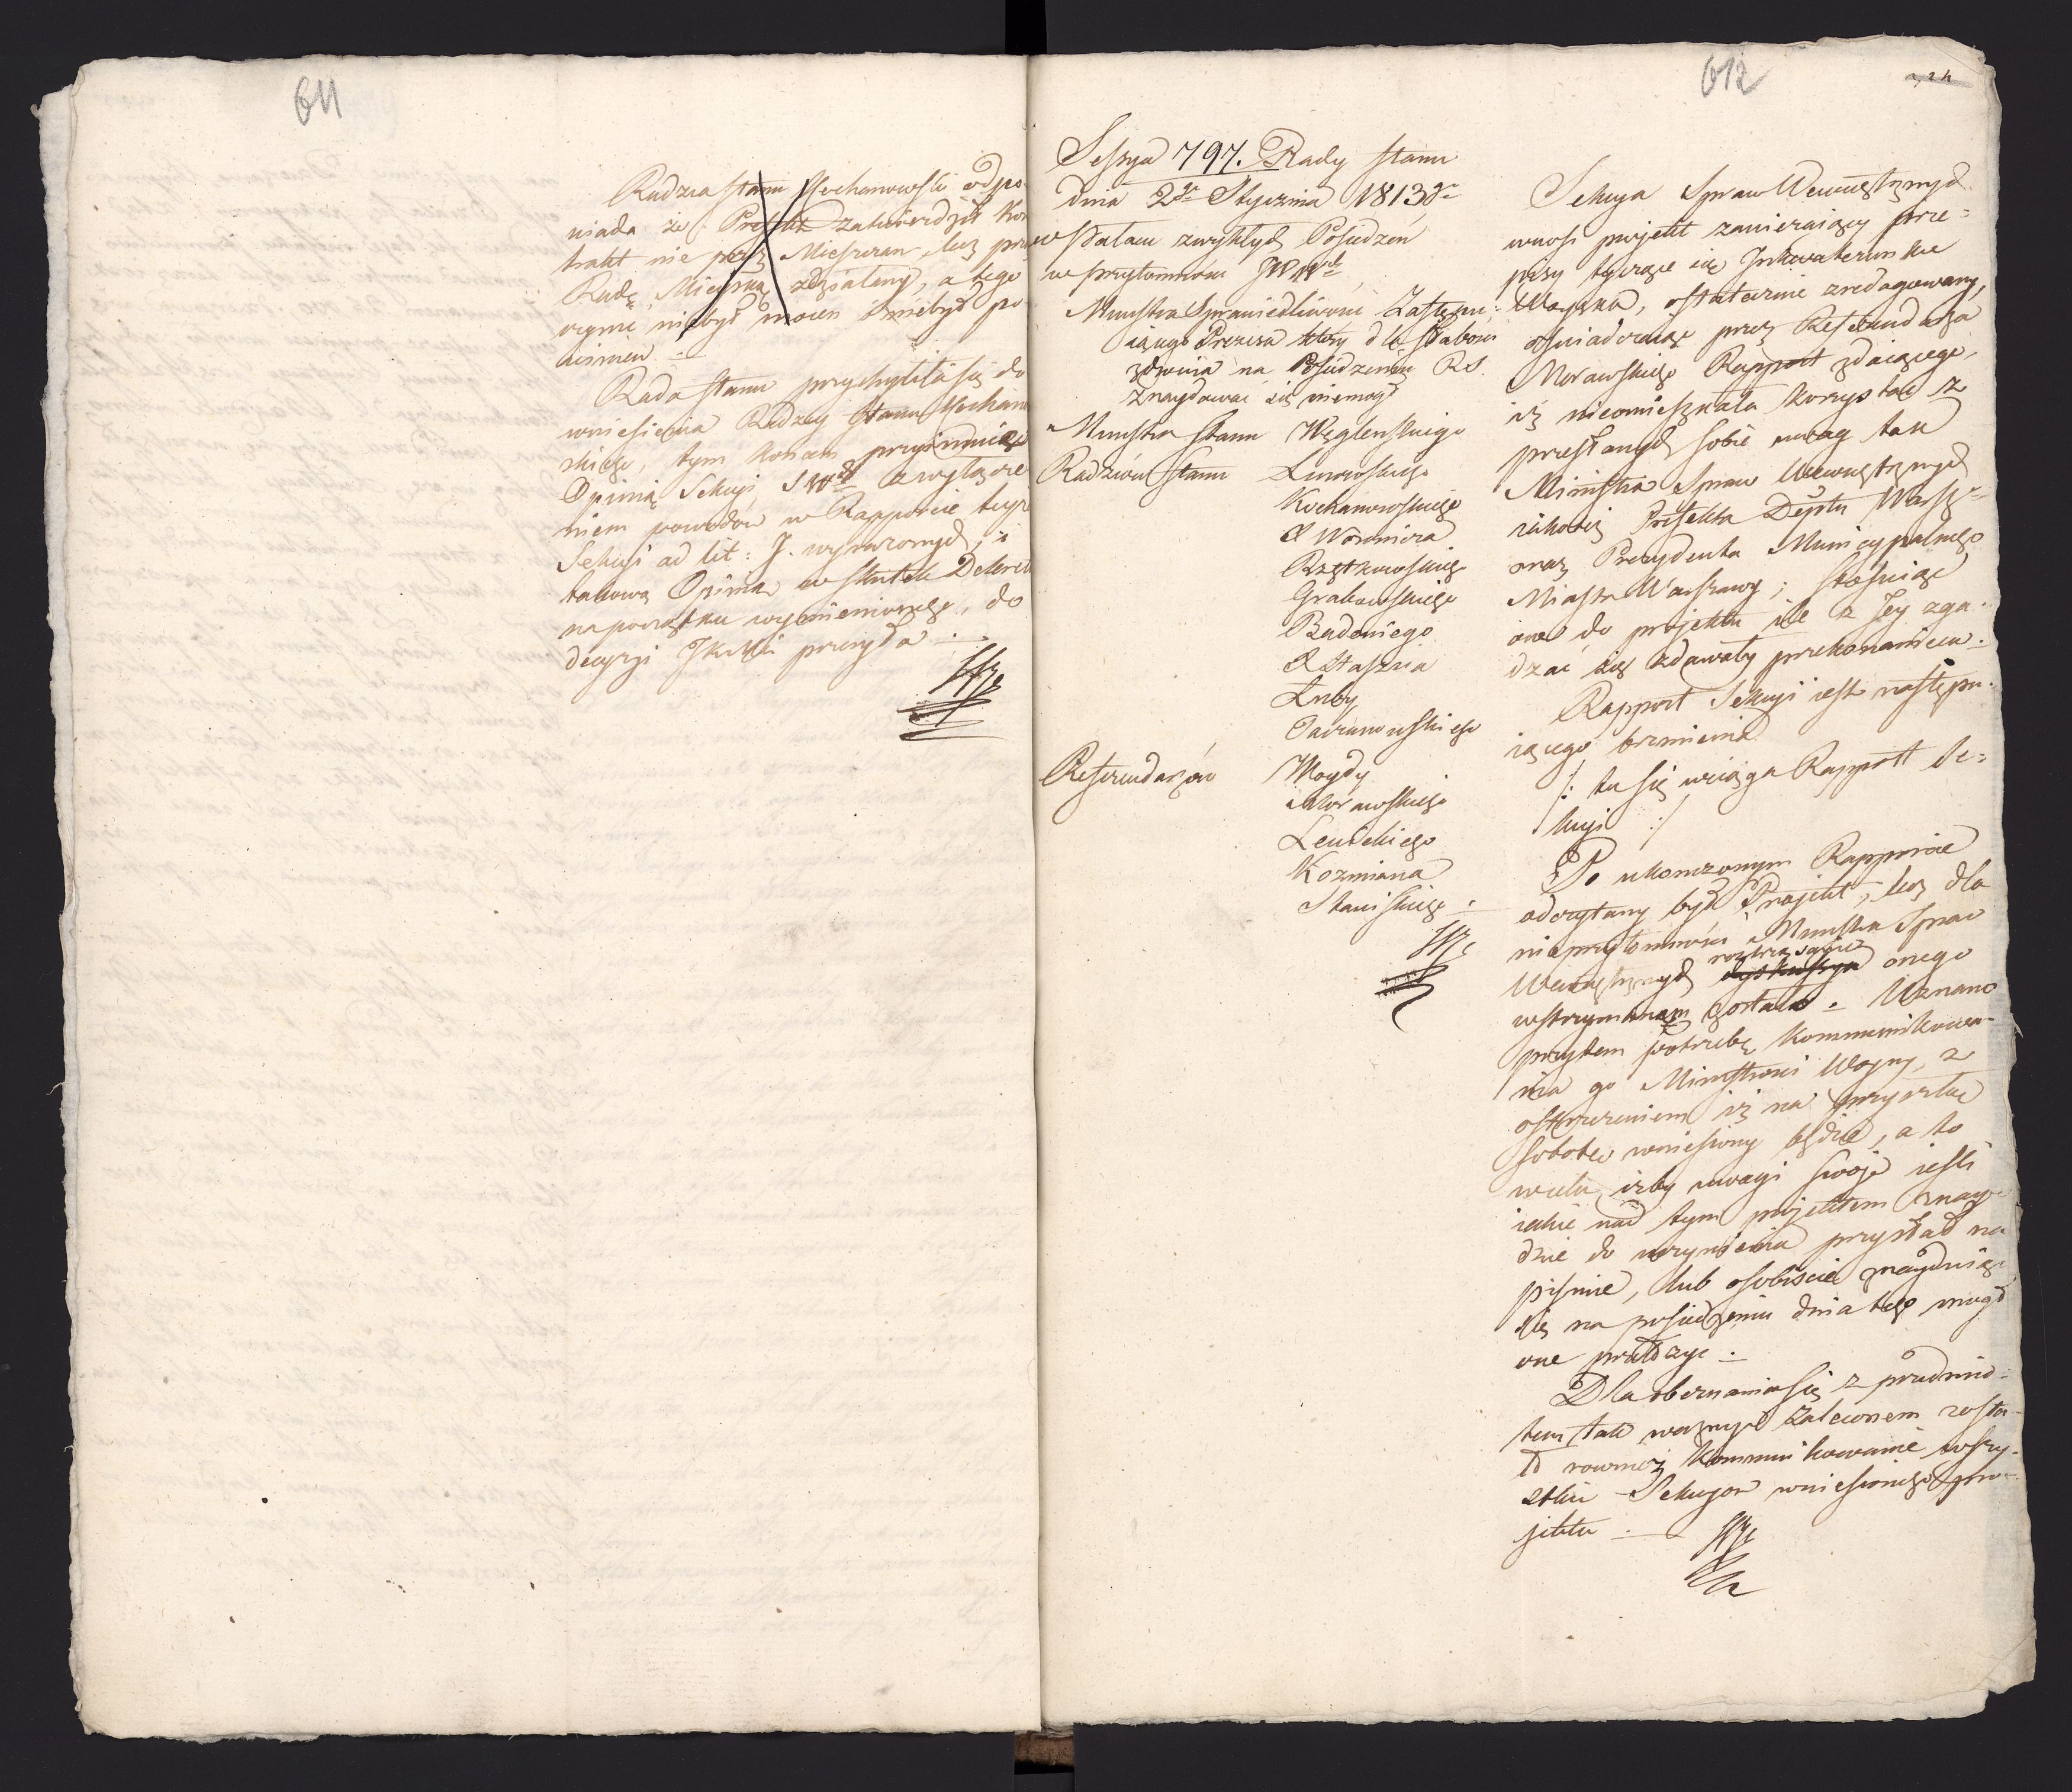 611
Radzca stanu Kochanowski odpo-
wiada że Prefekt zatwierdził kon
trakt nie przez Mieszczan, lecz przez
Radę Mieyską zdziałany, a tego
czynić niebył mocen i niebył po
winien.
Rada stanu przychyliła się do
wniesienia Radzcy stanu Kochanow
skiego, tym końcem przyimuiąc
Opinią Sekcyi, S W. z wyłącze
niem powodów w Rapporcie teyże
Sekcyi ad lit: J. wyrażonych, i
takową Opinią w skutek Dekretu
na początku wymienionego, do
decyzyi JKMci przeszła.
612
Sessya 797. Rady stanu
dnia 2go Stycznia 1813 r
w Pałacu zwykłych Posiedzeń
w przytomności JWWch
Ministra Sprawiedliwości Zastępu-
iącego Prezesa który dla słabości
zdrowia na Posiedzeniu RS.
znaydować się niemógł
Ministra stanu Węglenskiego
Radzców stanu Linowskiego
Kochanowskiego
Woźnicza
Rzętkowskiego
Grabowskiego
Badeniego
Staszica
Łuby
Tarnowskiego
Referendarzów Woydy
Morawskiego
Lewickiego
Koźmiana
Stawiskiego.
Sekcya Spraw Wewnętrznych
wnosi projekt zawieraiący prze-
pisy tyczące się Inkwaterunku
Woyska, ostatecznie zredagowany,
oświadczaiąc przez Referendarza
Morawskiego Rapport zdaiącego,
iż nieomieszkała korzystać z
przesłanych sobie uwag tak
Ministra Spraw Wewnętrznych
iakoteż Prefekta Deptu Warszgo
oraz Prezydenta Municypalnego
Miasta Warszawy; stosuiąc
one do projektu ile z Jey zga-
dzać się zdawały przekonaniem.
Rapport Sekcyi iest następu-
iącego brzmienia
/: tu się wciąga Rapport Se-
kcyi :/
Po ukończonym Rapporcie
odczytany był Projekt, lecz dla
nieprzytomności Ministra Spraw
roztrząsanie
Wewnętrznych dyskussya onego
wstrzymanem zostało. Uznano
przytem potrzebę kommunikowa-
nia go Ministrowi Woyny, z
ostrzeżeniem iż na przyszłą
sobotę wniesiony będzie, a to
w celu, iżby uwagi swoje iesli
iakie nad tym projektem znay-
dzie do uczynienia przysłał na
piśmie, lub osobiście znayduiąc
się na posiedzeniu dnia tego mógł
one przełożyć.
Dla obeznania się z przedmio-
tem tak ważnym zaleconem zosta-
ło rownież kommunikowanie wszy-
stkim Sekcyom wniesionego pro-
jektu.